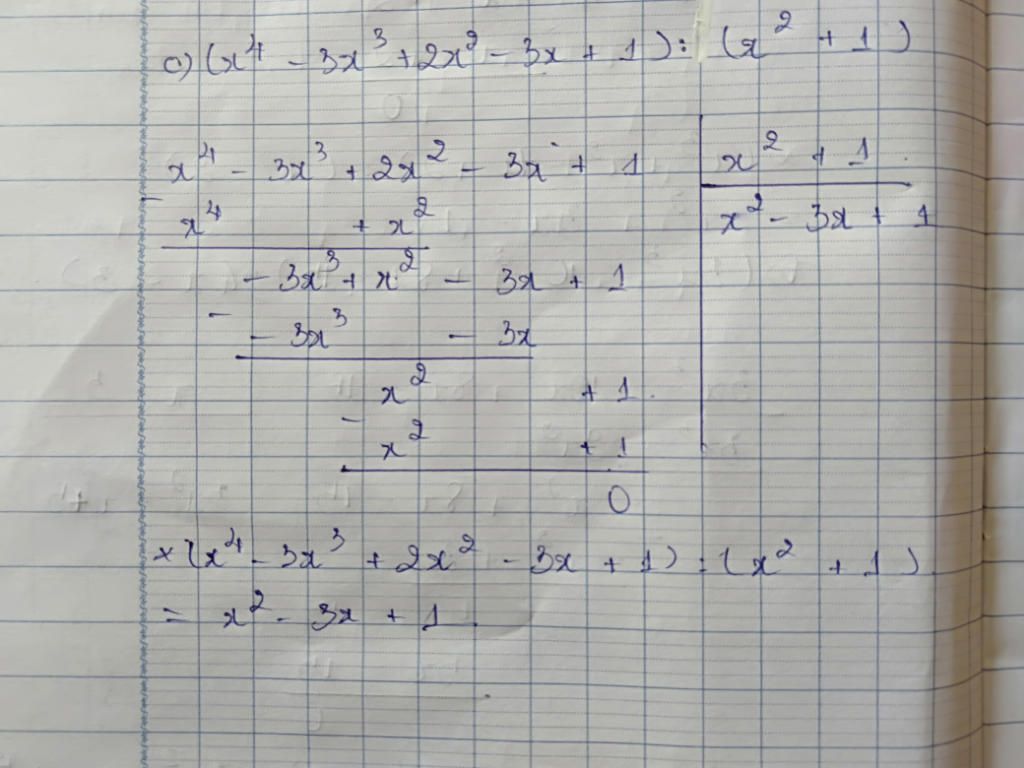 c) (x⁴ - 3x³ + 2x² - 3x + 1) : (x² + 1)
x⁴ - 3x³ + 2x² - 3x + 1 | x² + 1
- x⁴ + x² | x² - 3x + 1
- 3x³ + x² - 3x + 1
- - 3x³ - 3x
x² + 1
- x² + 1
0
× (x⁴ - 3x³ + 2x² - 3x + 1) : (x² + 1)
= x² - 3x + 1.